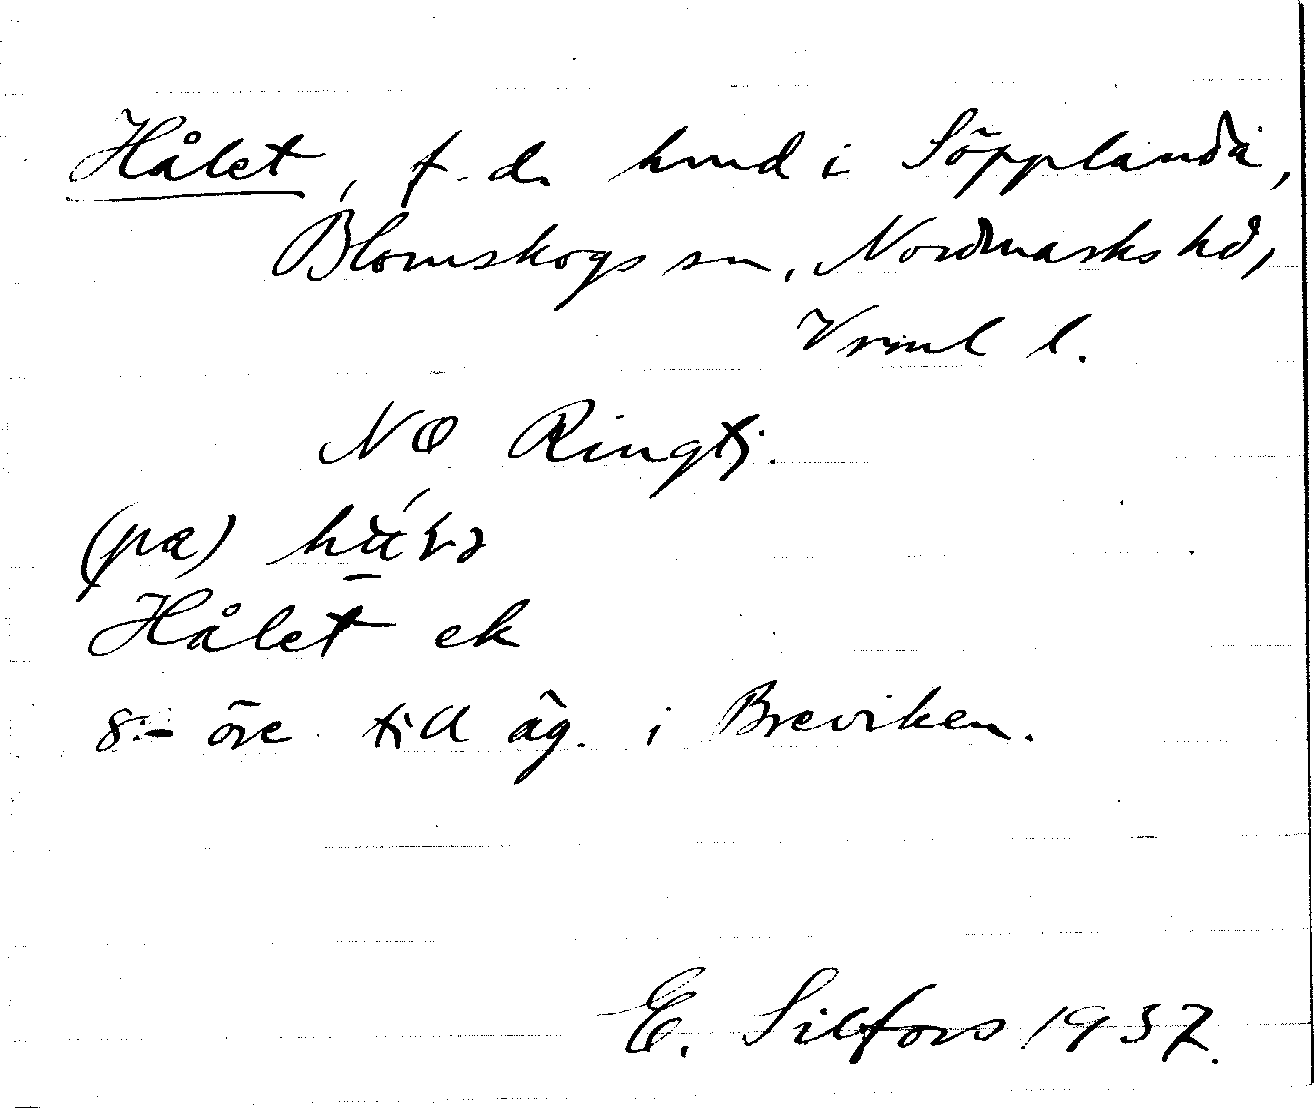 Hålet, f.d. hmd i Söpplanda,
Blomskogs sn, Nordmarks hd,
Vrml l.
NO Ringtj.
(pæ)
Hålet ek
8:- öre till äg. i Breviken.
E. Silfors 1937.